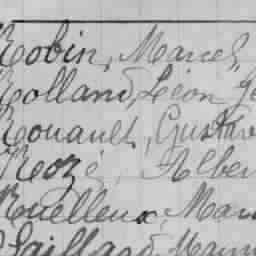 Robin, Marcel
Rolland, Léon
Rouault, Gustav
Rozé, Alber
Ruelleux, Mau
Saillard, Maur